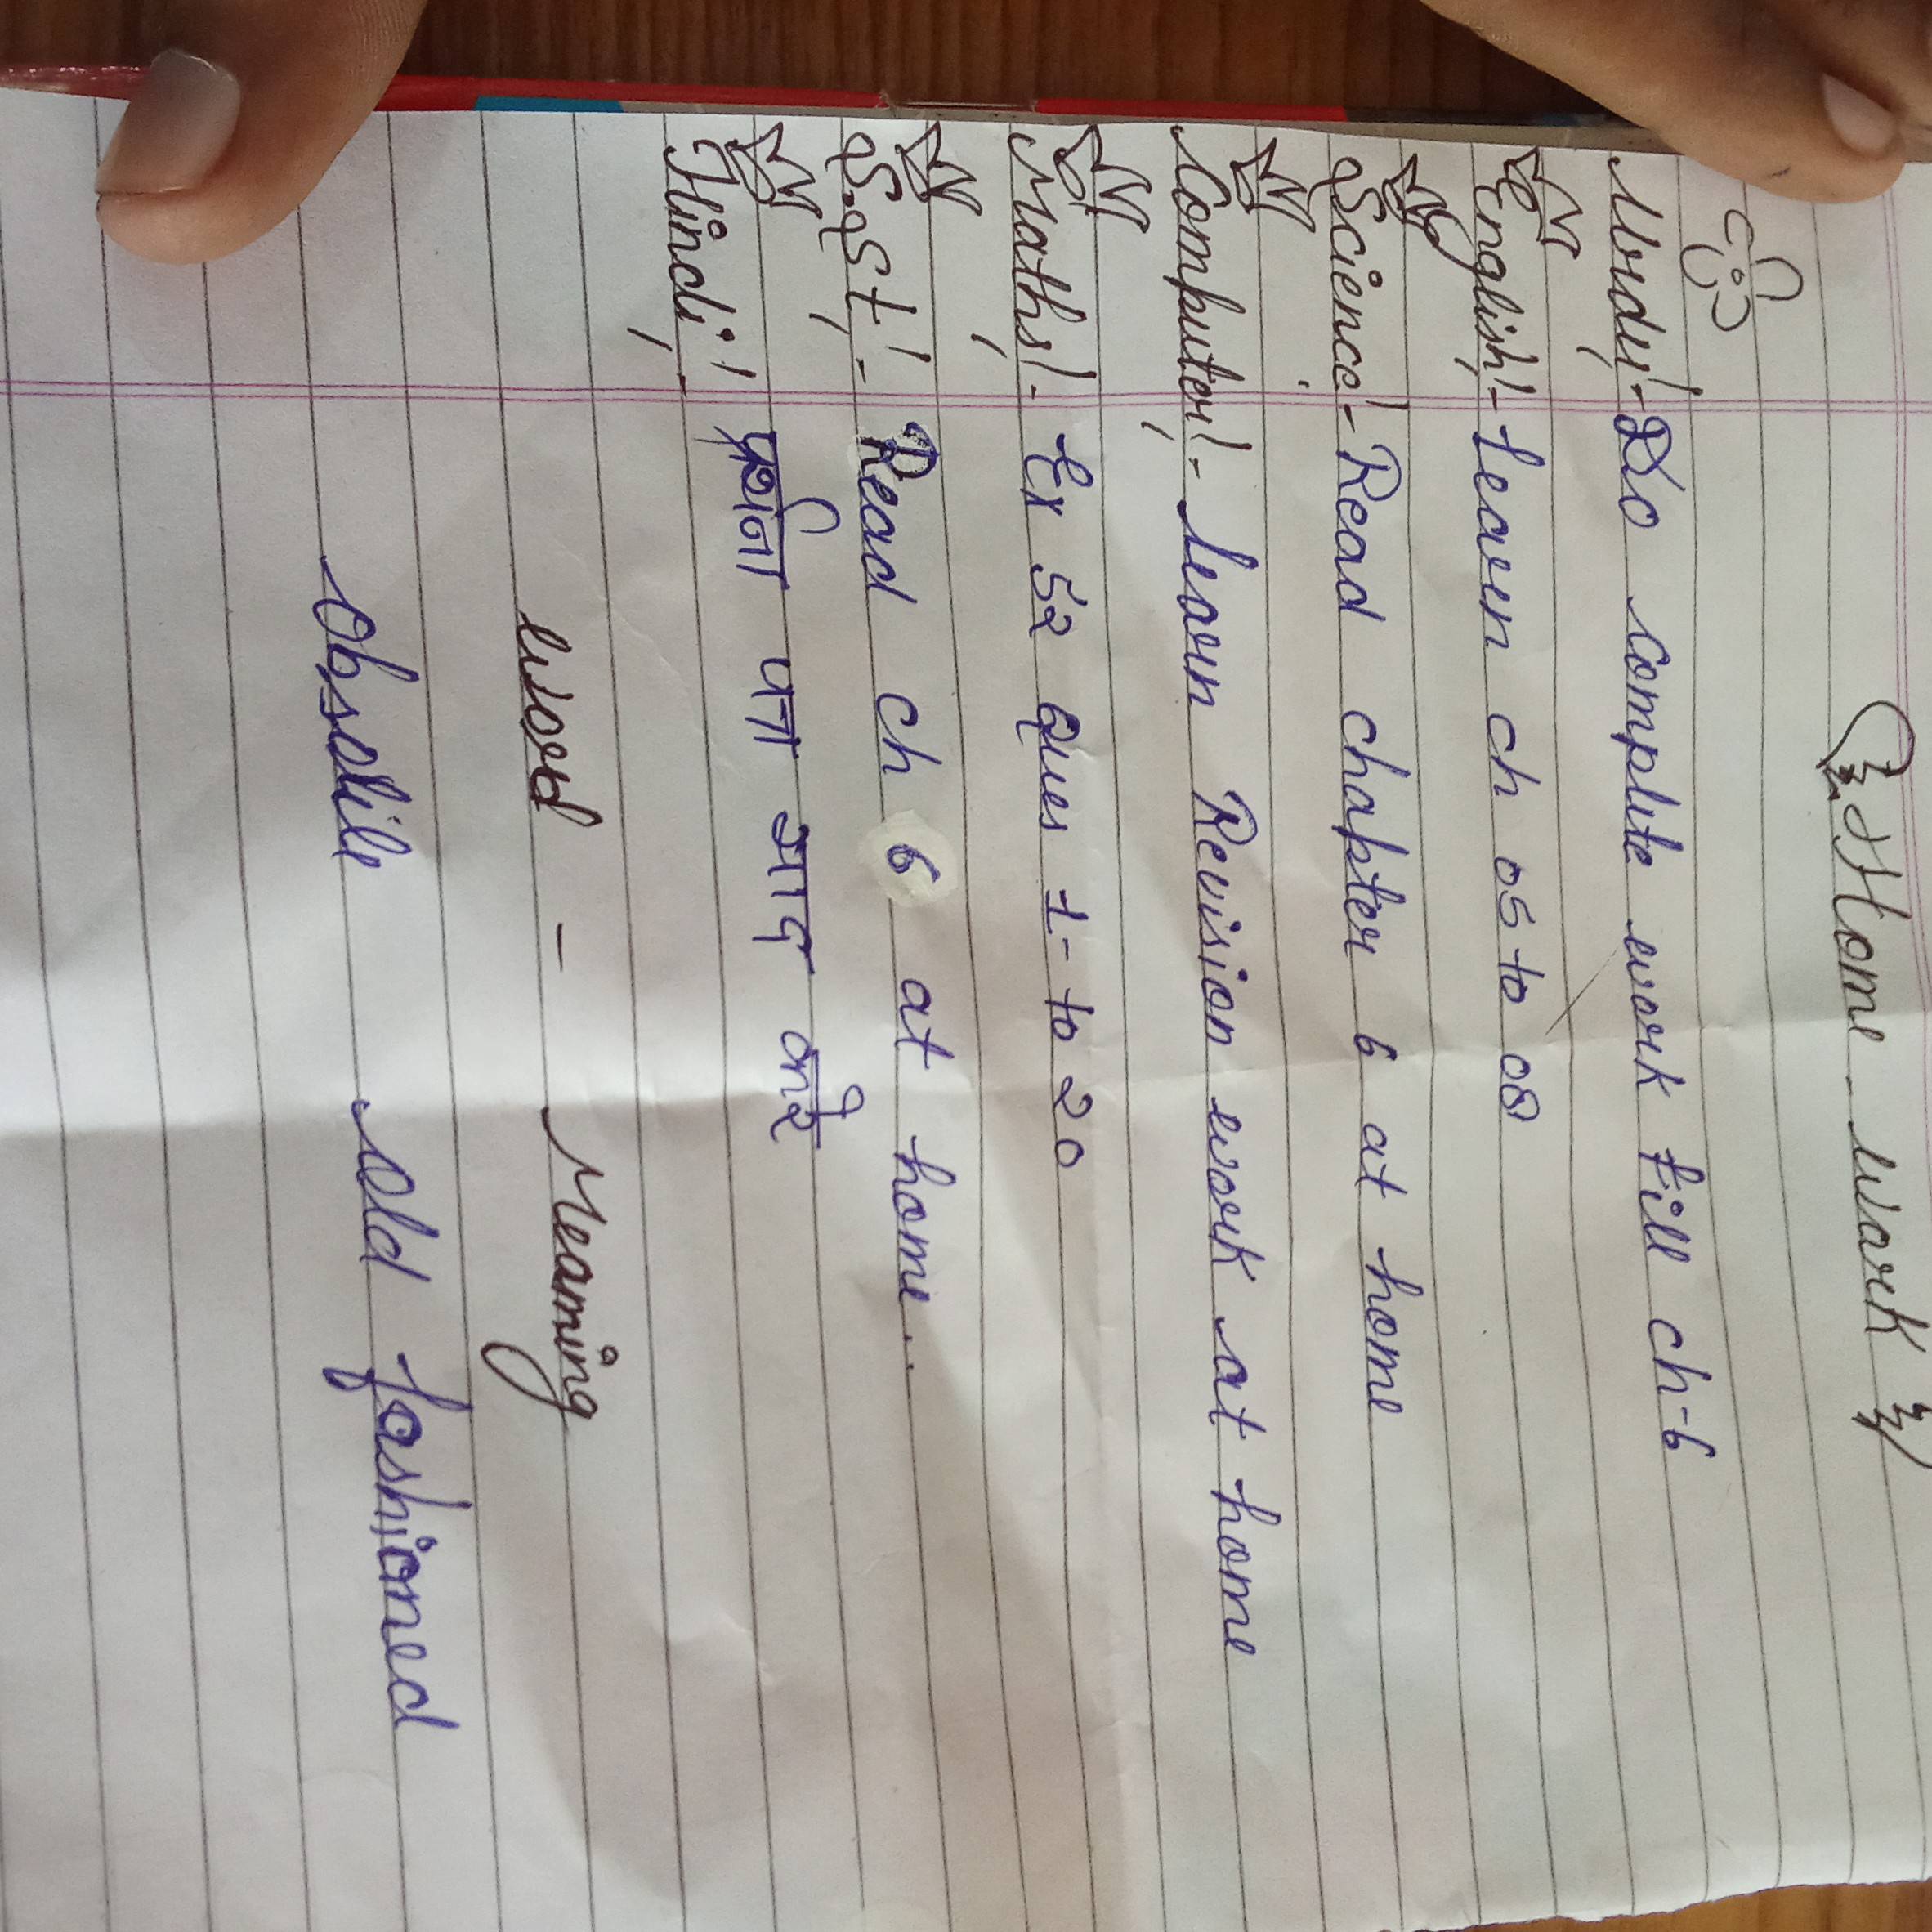 Home work
Urdu:- Do complete work till ch-6
English:- Learn ch 05 to 08
Science:- Read chapter 6 at home
Computer:- Learn Revision work at home
Maths:- Ex 52 ques 1 to 20
S.St:- Read ch 6 at home..
Hindi:- याद करे
Word - Meaning
Obselile old fashioned